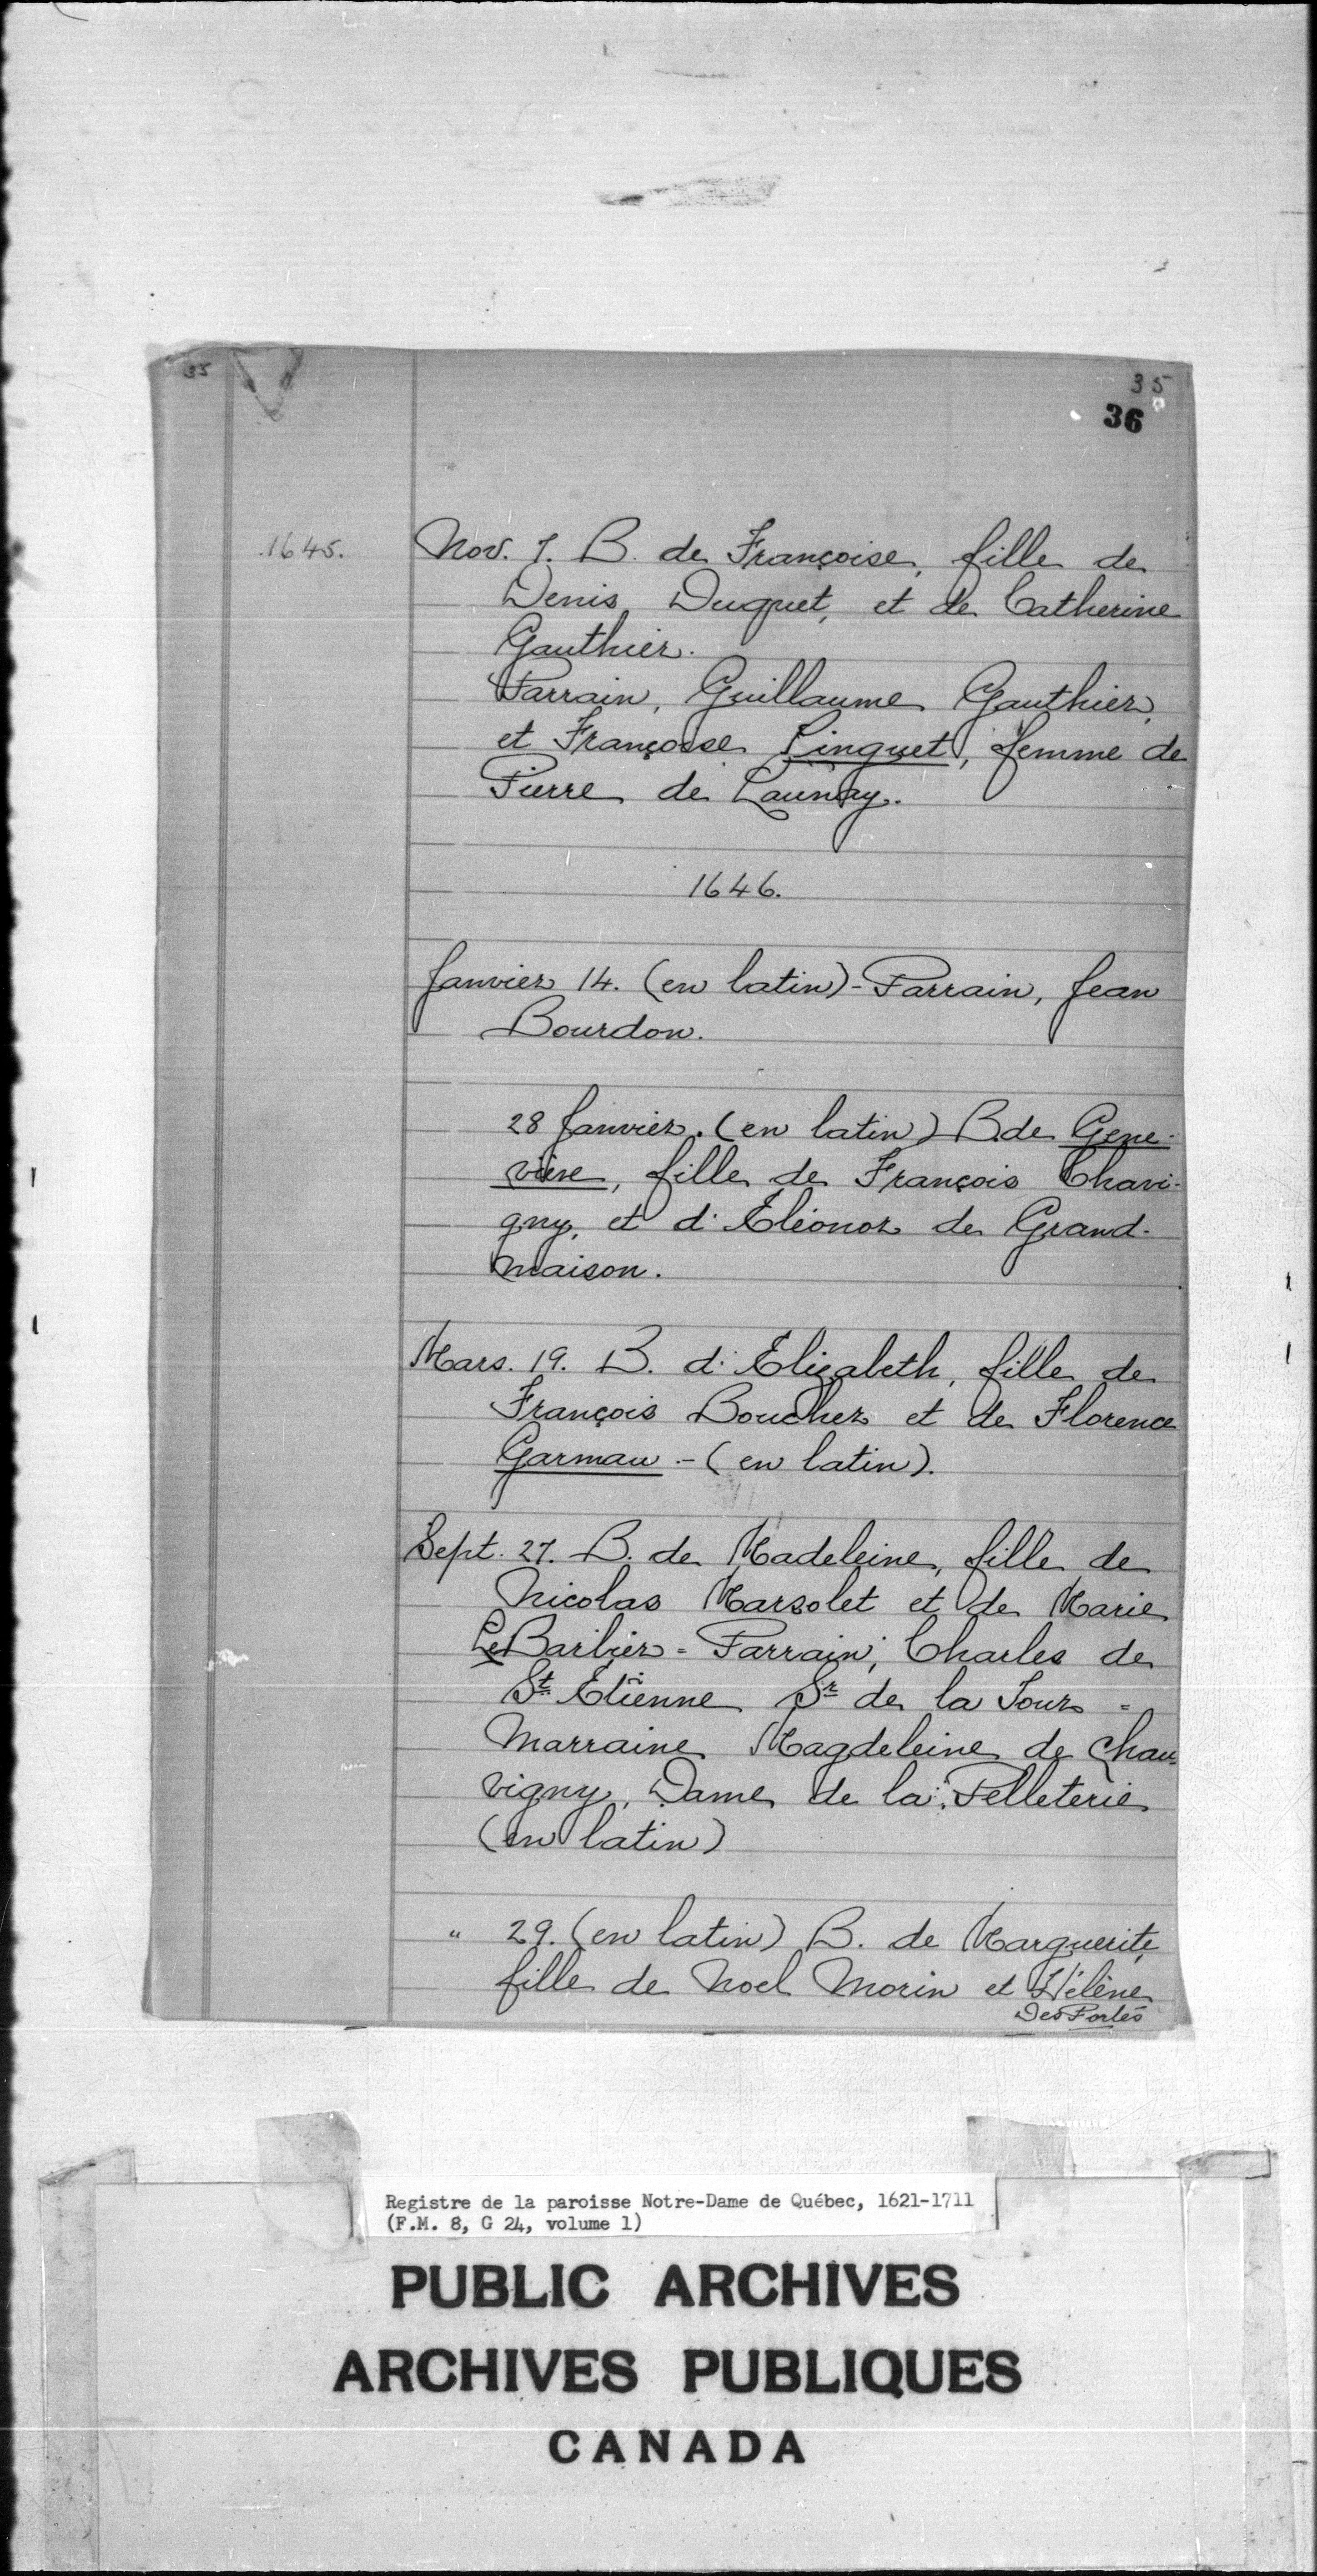 35
35
36
1645.
Nov. 7. B. de Françoise, fille de
Denis Duquet, et de Catherine
Gauthier.
Parrain, Guillaume Gauthier,
et Françoise Pinguet, femme de
Pierre de Launay.
1646.
Janvier 14. (en latin) - Parrain, Jean
Bourdon.
28 Janvier. (en latin) B. de Gene-
viève, fille de François Chavi-
gny, et d'Eléonor de Grand-
maison.
Mars. 19. B. d'Elizabeth, fille de
François Boucher et de Florence
Garman - (en latin).
Sept. 27. B. de Madeleine, fille de
Nicolas Marsolet et de Marie
Le Barbier = Parrain, Charles de
St. Etienne Sr de la Tour =
Marraine Magdeleine de Chau-
vigny, Dame de la Pelleterie
(en latin)
" 29. (en latin) B. de Marguerite,
fille de Noel Morin et Hélène
Des Portes
Registre de la paroisse Notre-Dame de Québec, 1621-1711
(F.M. 8, G 24, volume 1)
PUBLIC ARCHIVES
ARCHIVES PUBLIQUES
CANADA